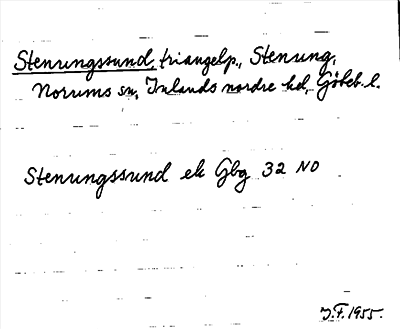 Stenungssund, triangelp., Stenung,
Norums sn, Inlands nordre hd, Göteb. l.
Stenungssund ek Gbg 32 NO
J.F. 1955.